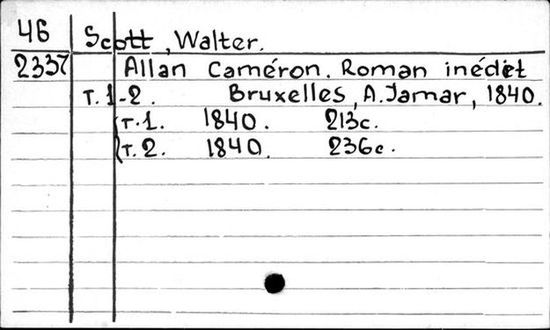 46 Scott, Walter.
2337 Allan Caméron. Roman inédit
т. 1-2. Bruxelles, A. Jamar, 1840.
(т. 1. 1840. 213с.
(т. 2. 1840. 236с.